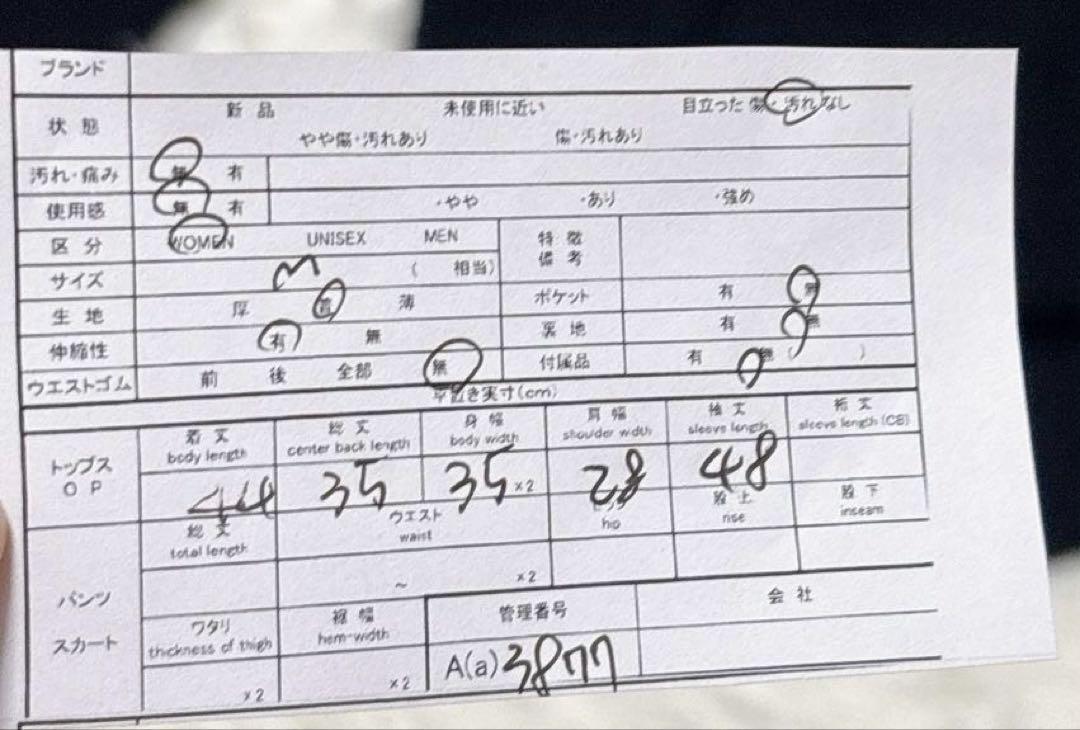 ブランド
状態 新品 未使用に近い 目立った傷・汚れなし
やや傷・汚れあり 傷・汚れあり
汚れ・痛み 無 有
使用感 無 有 ・やや ・あり ・強め
区分 WOMEN UNISEX MEN 特徴 備考
サイズ M ( 相当)
生地 厚 普 薄 ポケット 有 無
伸縮性 有 無 裏地 有 無
ウエストゴム 前 後 全部 無 付属品 有 無 ( )
平置き実寸(cm)
トップス OP
着丈 総丈 身幅 肩幅 袖丈 裄丈
body length center back length body width shoulder width sleeve length sleeve length (CB)
44 35 35 ×2 28 48
パンツ スカート
総丈 ウエスト 股上 股下
total length waist hip rise inseam
~ ×2
ワタリ 裾幅 管理番号 会社
thickness of thigh hem-width
×2 ×2 A(a) 3877